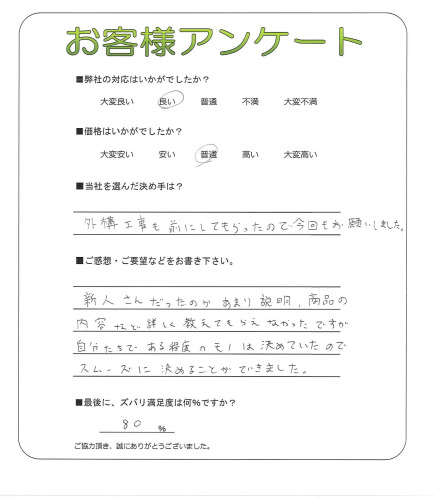 お客様アンケート
■弊社の対応はいかがでしたか？
大変良い 良い 普通 不満 大変不満
■価格はいかがでしたか？
大変安い 安い 普通 高い 大変高い
■当社を選んだ決め手は？
外構工事も前にしてもらったので今回もお願いしました。
■ご感想・ご要望などをお書き下さい。
新人さんだったのか あまり説明、商品の
内容など詳しく教えてもらえなかったですが
自分たちである程度のモノは決めていたので
スムーズに決めることができました。
■最後に、ズバリ満足度は何%ですか？
80 %
ご協力頂き、誠にありがとうございました。